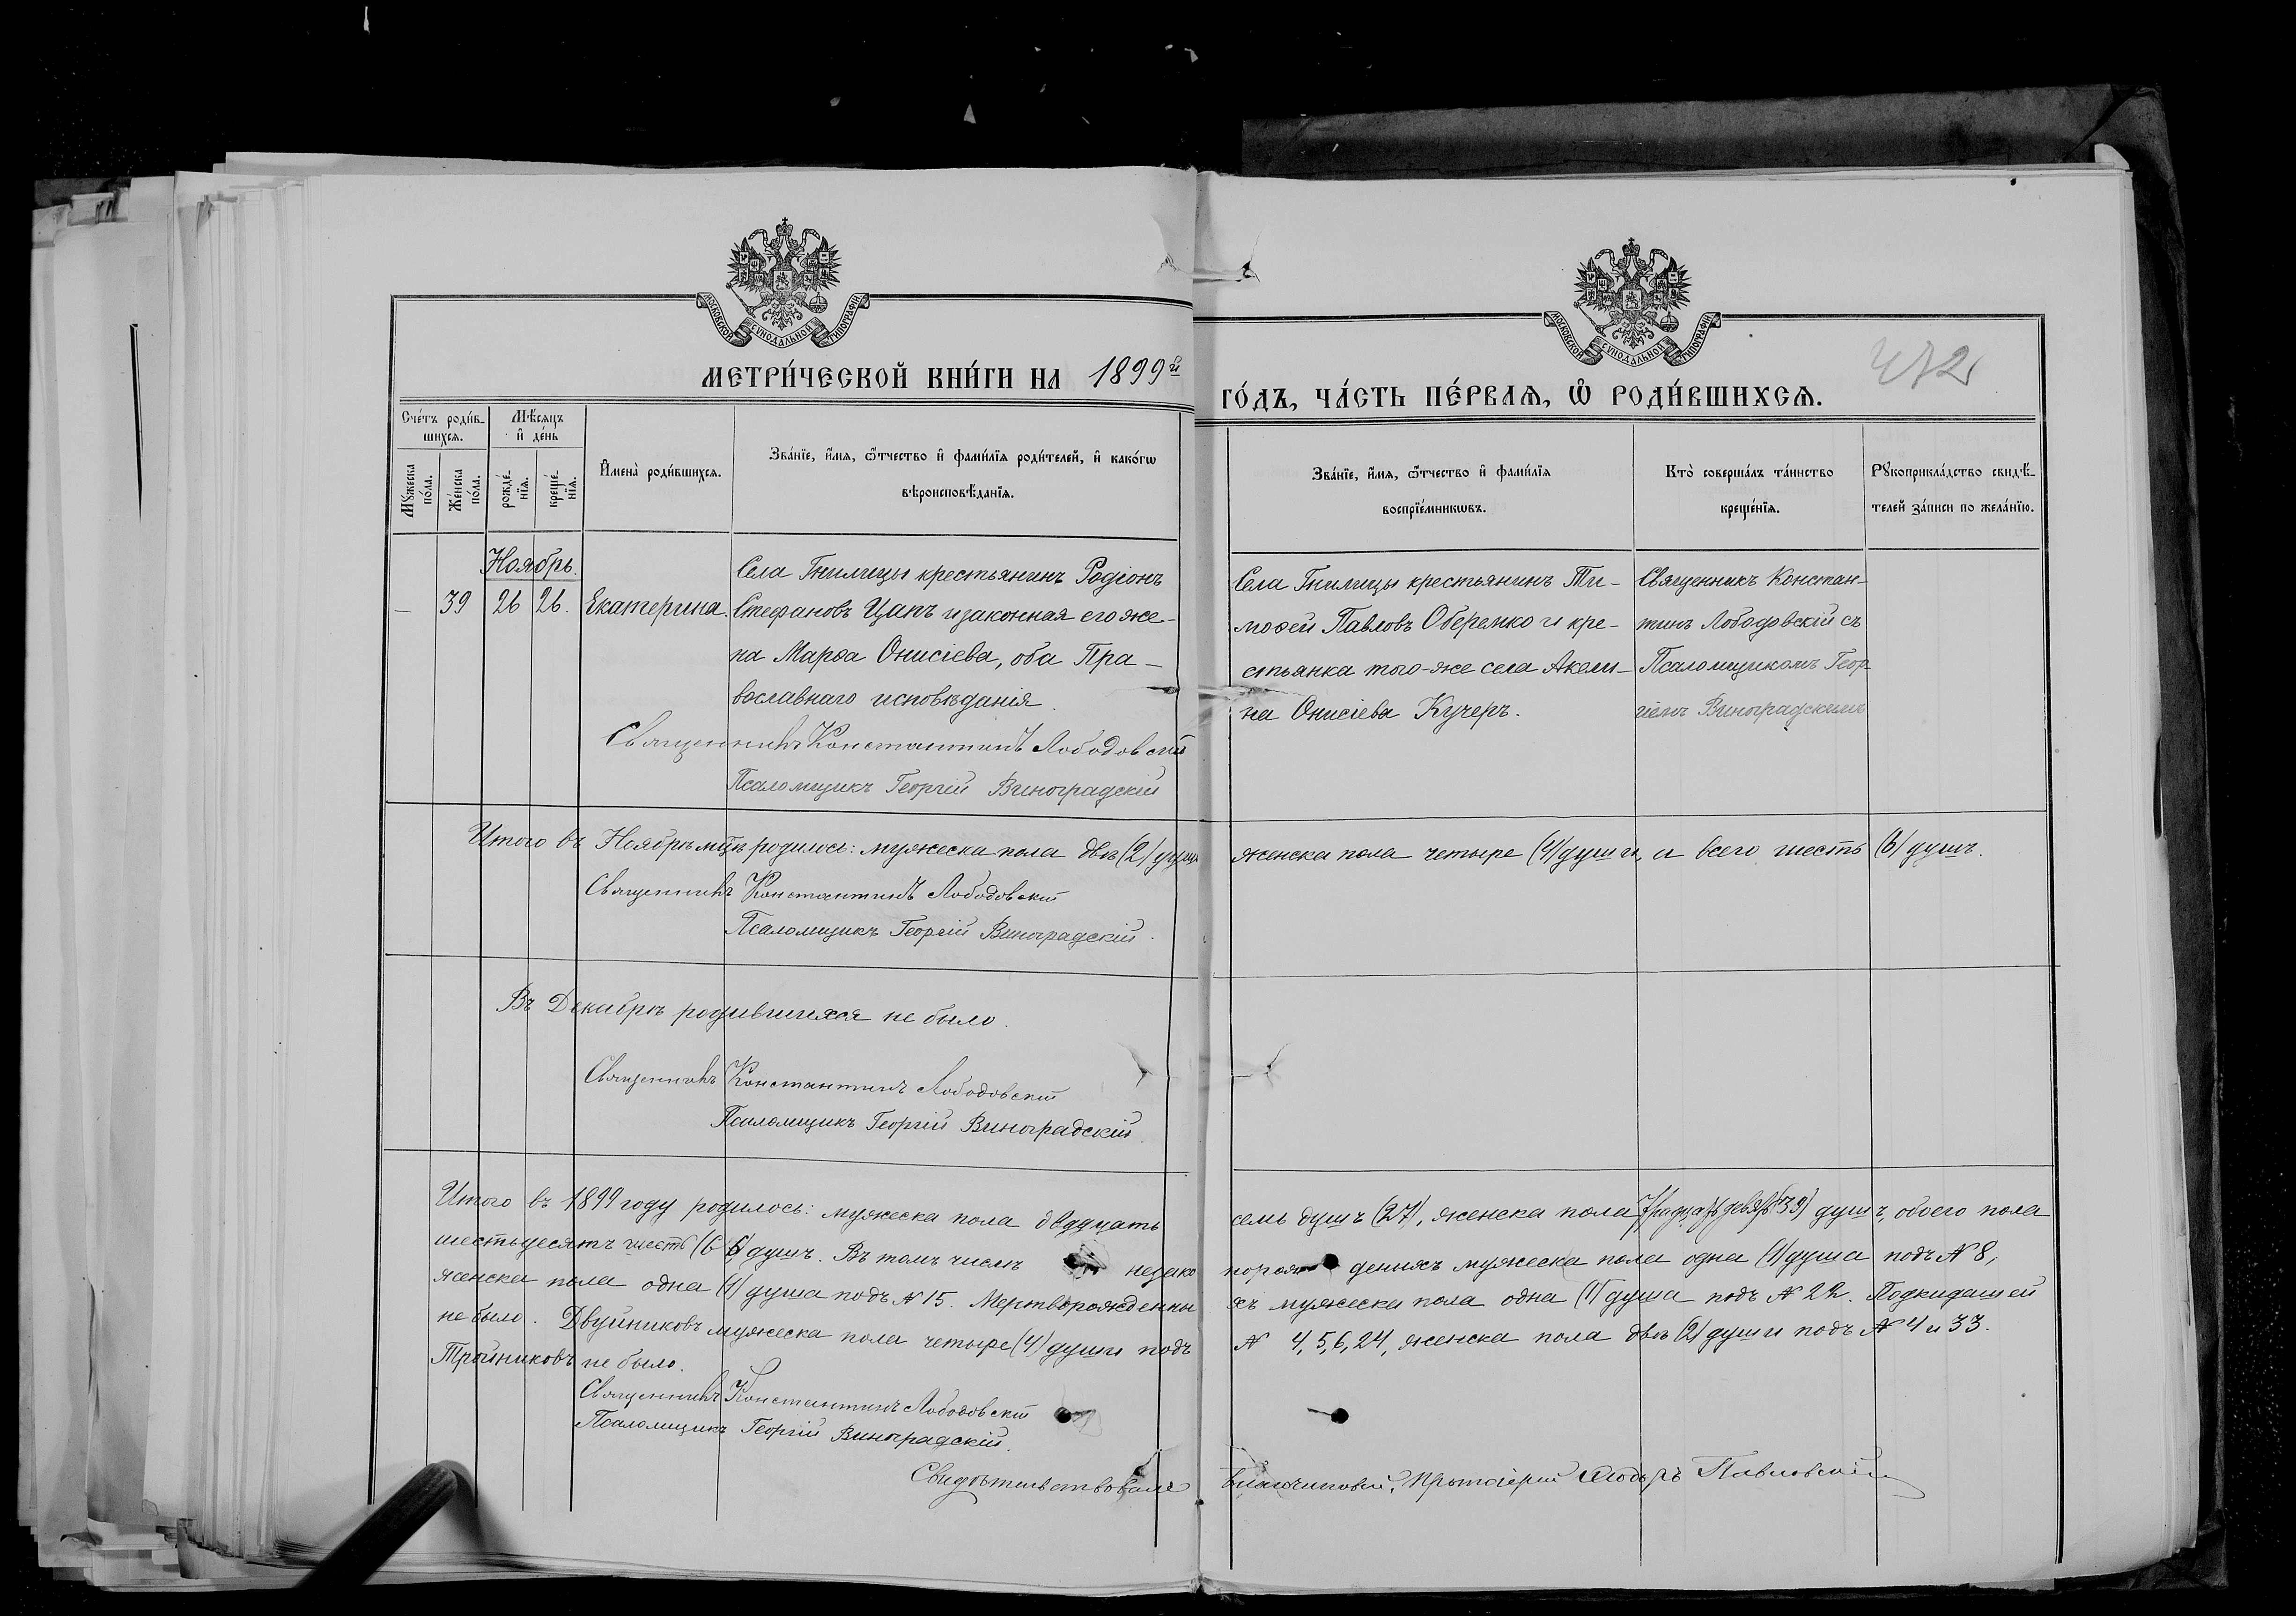 МОСКОВСКОЙ СУНОДАЛЬНОЙ ТИПОГРАФІИ
МОСКОВСКОЙ СУНОДАЛЬНОЙ ТИПОГРАФІИ
МЕТРИ́ЧЕСКОЙ КНИ́ГИ НА 1899й
ГО́ДЪ, ЧА́СТЬ ПЕ́РВАѦ, Ѡ҆ РОДИ́ВШИХСѦ.
Сче́тъ роди́в-
шихсѧ.
Мѣ́сѧцъ
и҆ де́нь
Мꙋ́жеска
по́ла.
Же́нска
по́ла.
рожде́-
нїѧ.
креще́-
нїѧ.
И҆мена̀ роди́вшихсѧ.
Зва́нїе, и҆́мѧ, ѻ҆́тчество и҆ фами́лїѧ роди́телей, и҆ како́гѡ
вѣроисповѣ́данїѧ.
Зва́нїе, и҆́мѧ, ѻ҆́тчество и҆ фами́лїѧ
воспрїе́мникѡвъ.
Кто̀ соверша́лъ та́инство
креще́нїѧ.
Рꙋкоприкла́дство свидѣ́-
телей за́писи по жела́нїю.
Ноябрь.
— 39 26 26. Екатерина.
Села Гнилицы крестьянинъ Родіонъ
Стефановъ Цапъ и законная его же-
на Марѳа Онисіева, оба Пра-
вославнаго исповѣданія.
Села Гнилицы крестьянинъ Ти-
моѳей Павловъ Оберемко и кре-
стьянка того-же села Акели-
на Онисіева Кучеръ.
Священникъ Констан-
тинъ Лободовскій съ
Псаломщикомъ Геор-
гіемъ Виноградскимъ
Священникъ Константинъ Лободовскій
Псаломщикъ Георгій Виноградскій
Итого въ Ноябрѣ мцѣ родилось: мужеска пола двѣ (2) души
женска пола четыре (4) души, и всего шесть (6) душъ.
Священникъ Константинъ Лободовскій
Псаломщикъ Георгій Виноградскій.
Въ Декабрѣ родившихся не было.
Священникъ Константинъ Лободовскій
Псаломщикъ Георгій Виноградскій.
Итого въ 1899 году родилось: мужеска пола двадцать
семь душъ (27), женска пола тридцать девять (39) душъ, обоего пола
шестьдесятъ шесть (66) душъ. Въ томъ числѣ незако
норожденныхъ мужеска пола одна (1) душа подъ № 8,
женска пола одна (1) душа подъ № 15. Мертворожденны
хъ мужеска пола одна (1) душа подъ № 22. Подкидышей
не было. Двуйниковъ мужеска пола четыре (4) души подъ
№ 4, 5, 6, 24, женска пола двѣ (2) души подъ № 4 и 33.
Тройниковъ не было.
Священникъ Константинъ Лободовскій
Псаломщикъ Георгій Виноградскій.
Свидѣтельствовалъ
Благочинный, Протоіерей Ѳеодоръ Павловскій